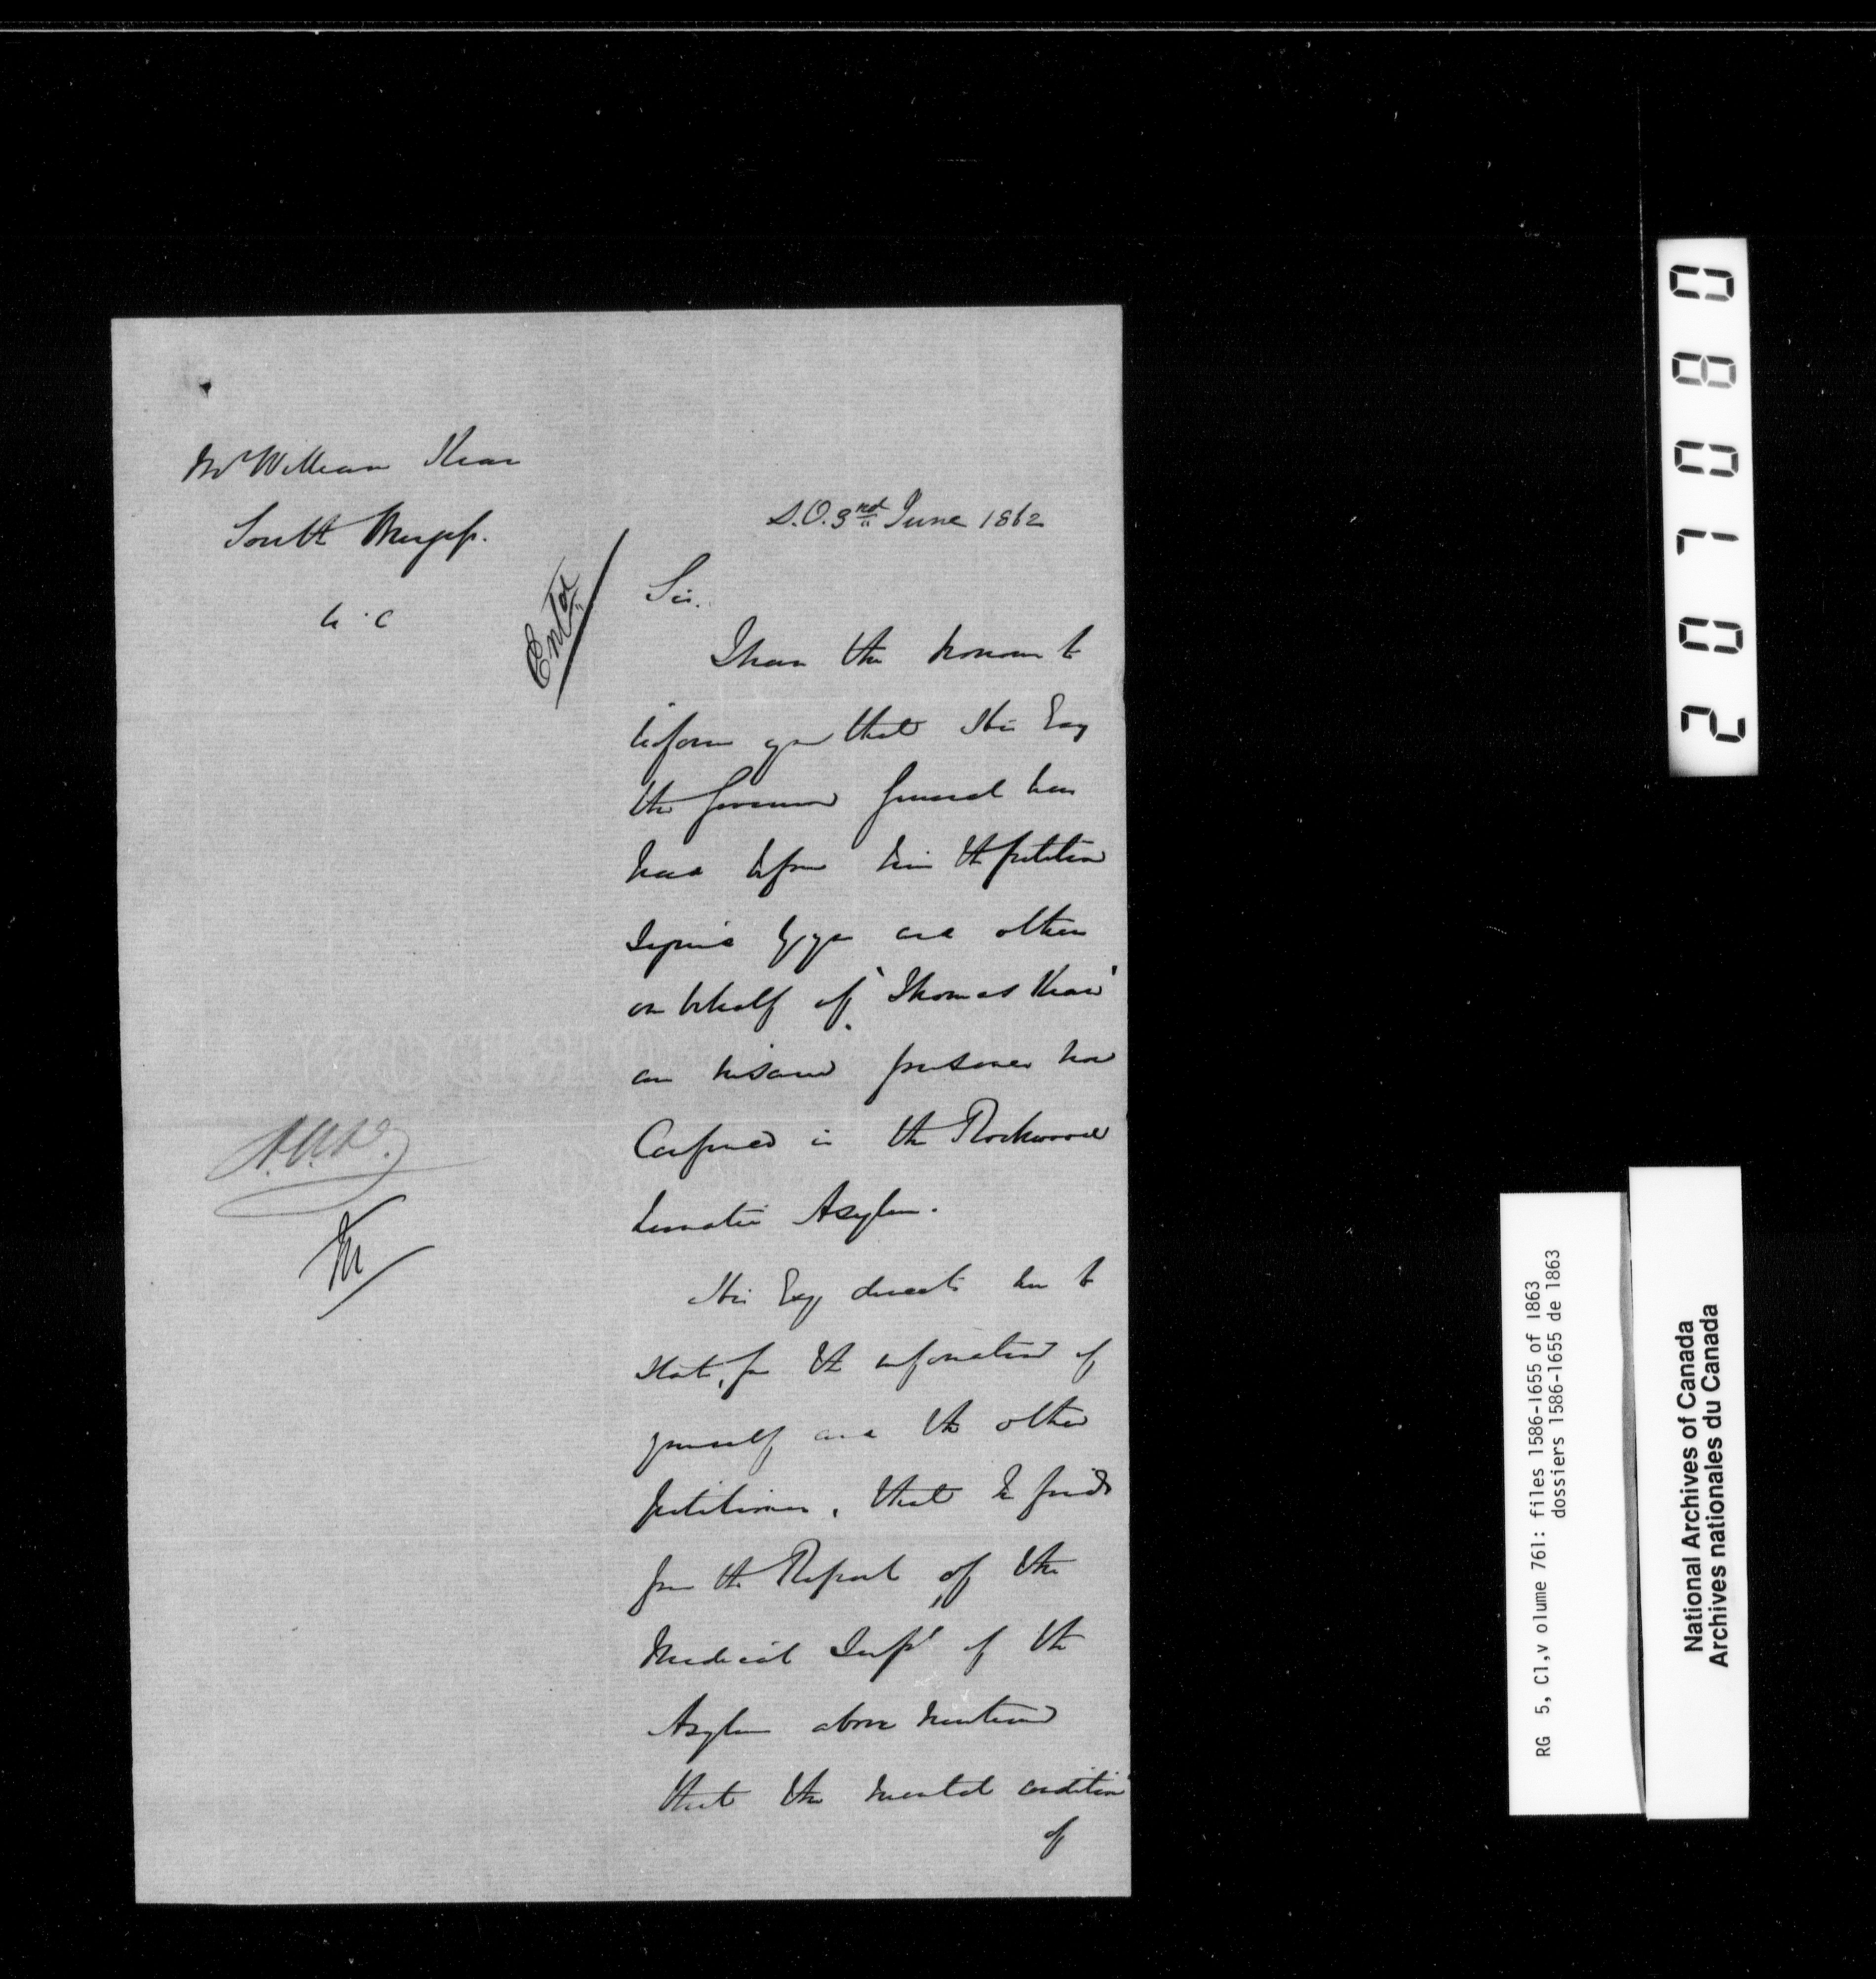 Mr William Kear
South
U.C
S.O. 3rd June 1862
Entd
Sir.
I have the honour to
inform you that His Excy
the Governor General has
had before him the petition
signed by you and others
on behalf of "Thomas Kear"
an insane prisoner now
Confined in the Rockwood
Lunatic Asylum.
His Excy directs me to
state, for the information of
yourself and the other
petitioners, that he finds
from the Report of the
Medical Supt of the
Asylum above mentioned
that the mental condition
of
207080
RG 5, C1,v olume 761: files 1586-1655 of 1863
dossiers 1586-1655 de 1863
National Archives of Canada
Archives nationales du Canada